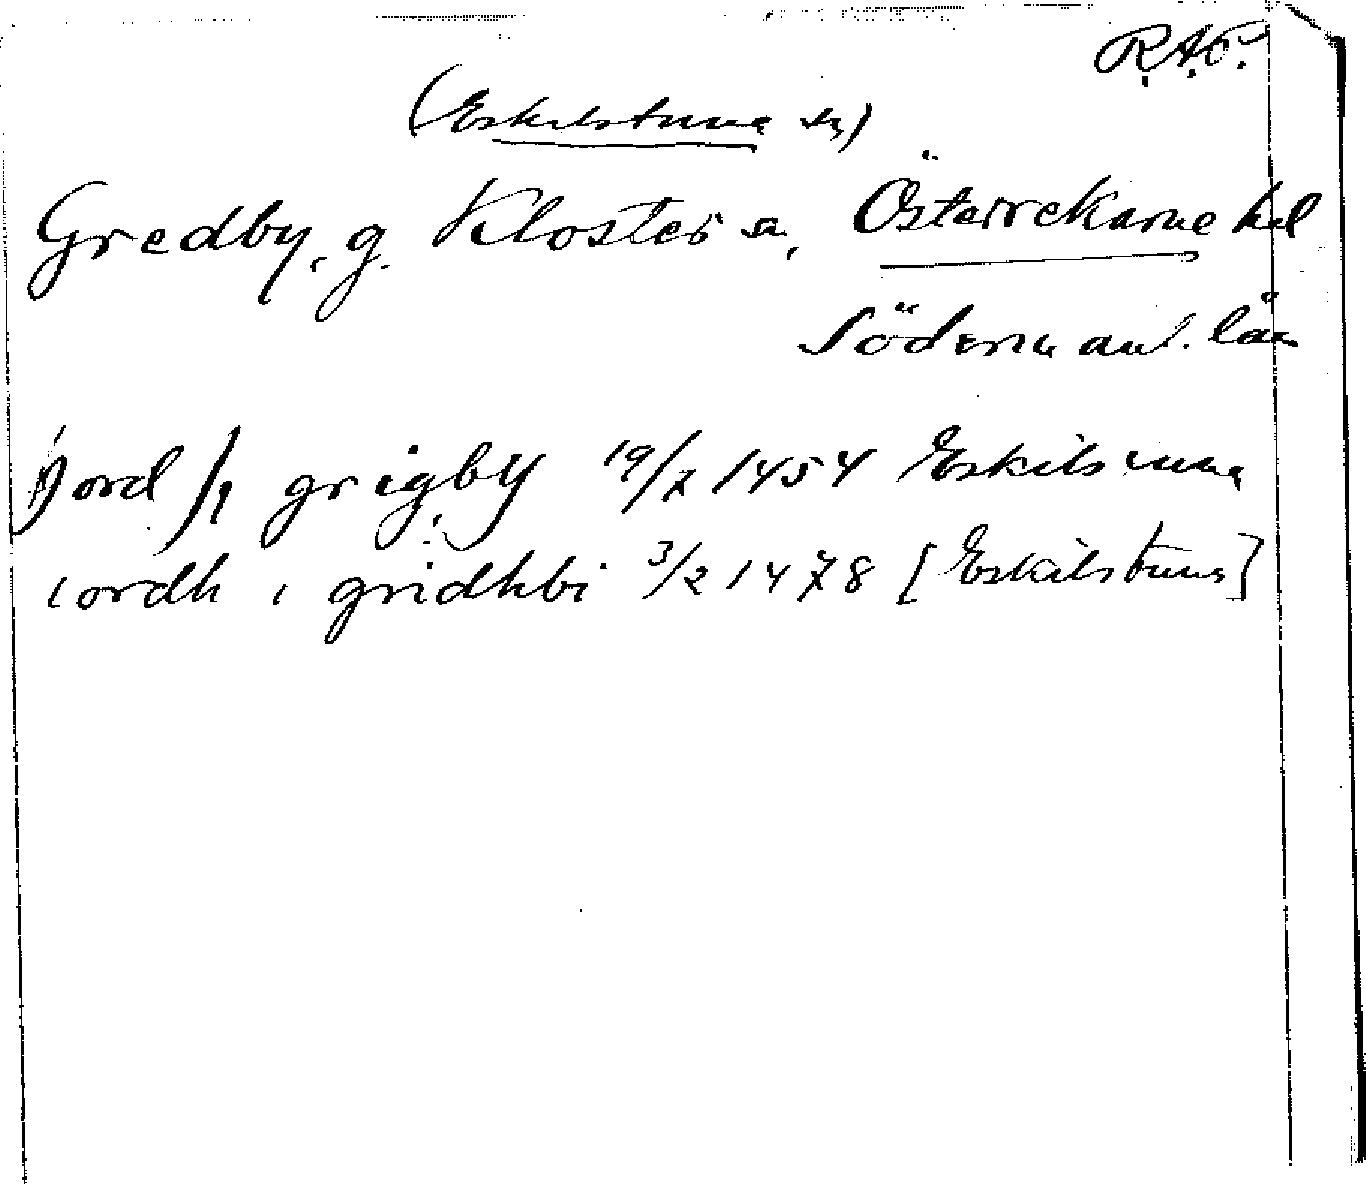 R.A.P.
(Eskilstuna sn)
Gredby, g. Klosters sn, Österrekarne hd
Södermanl. län
jord j grigby 19/7 1454 Eskilstuna
iordh i gridhbi 3/2 1478 [Eskilstuna]